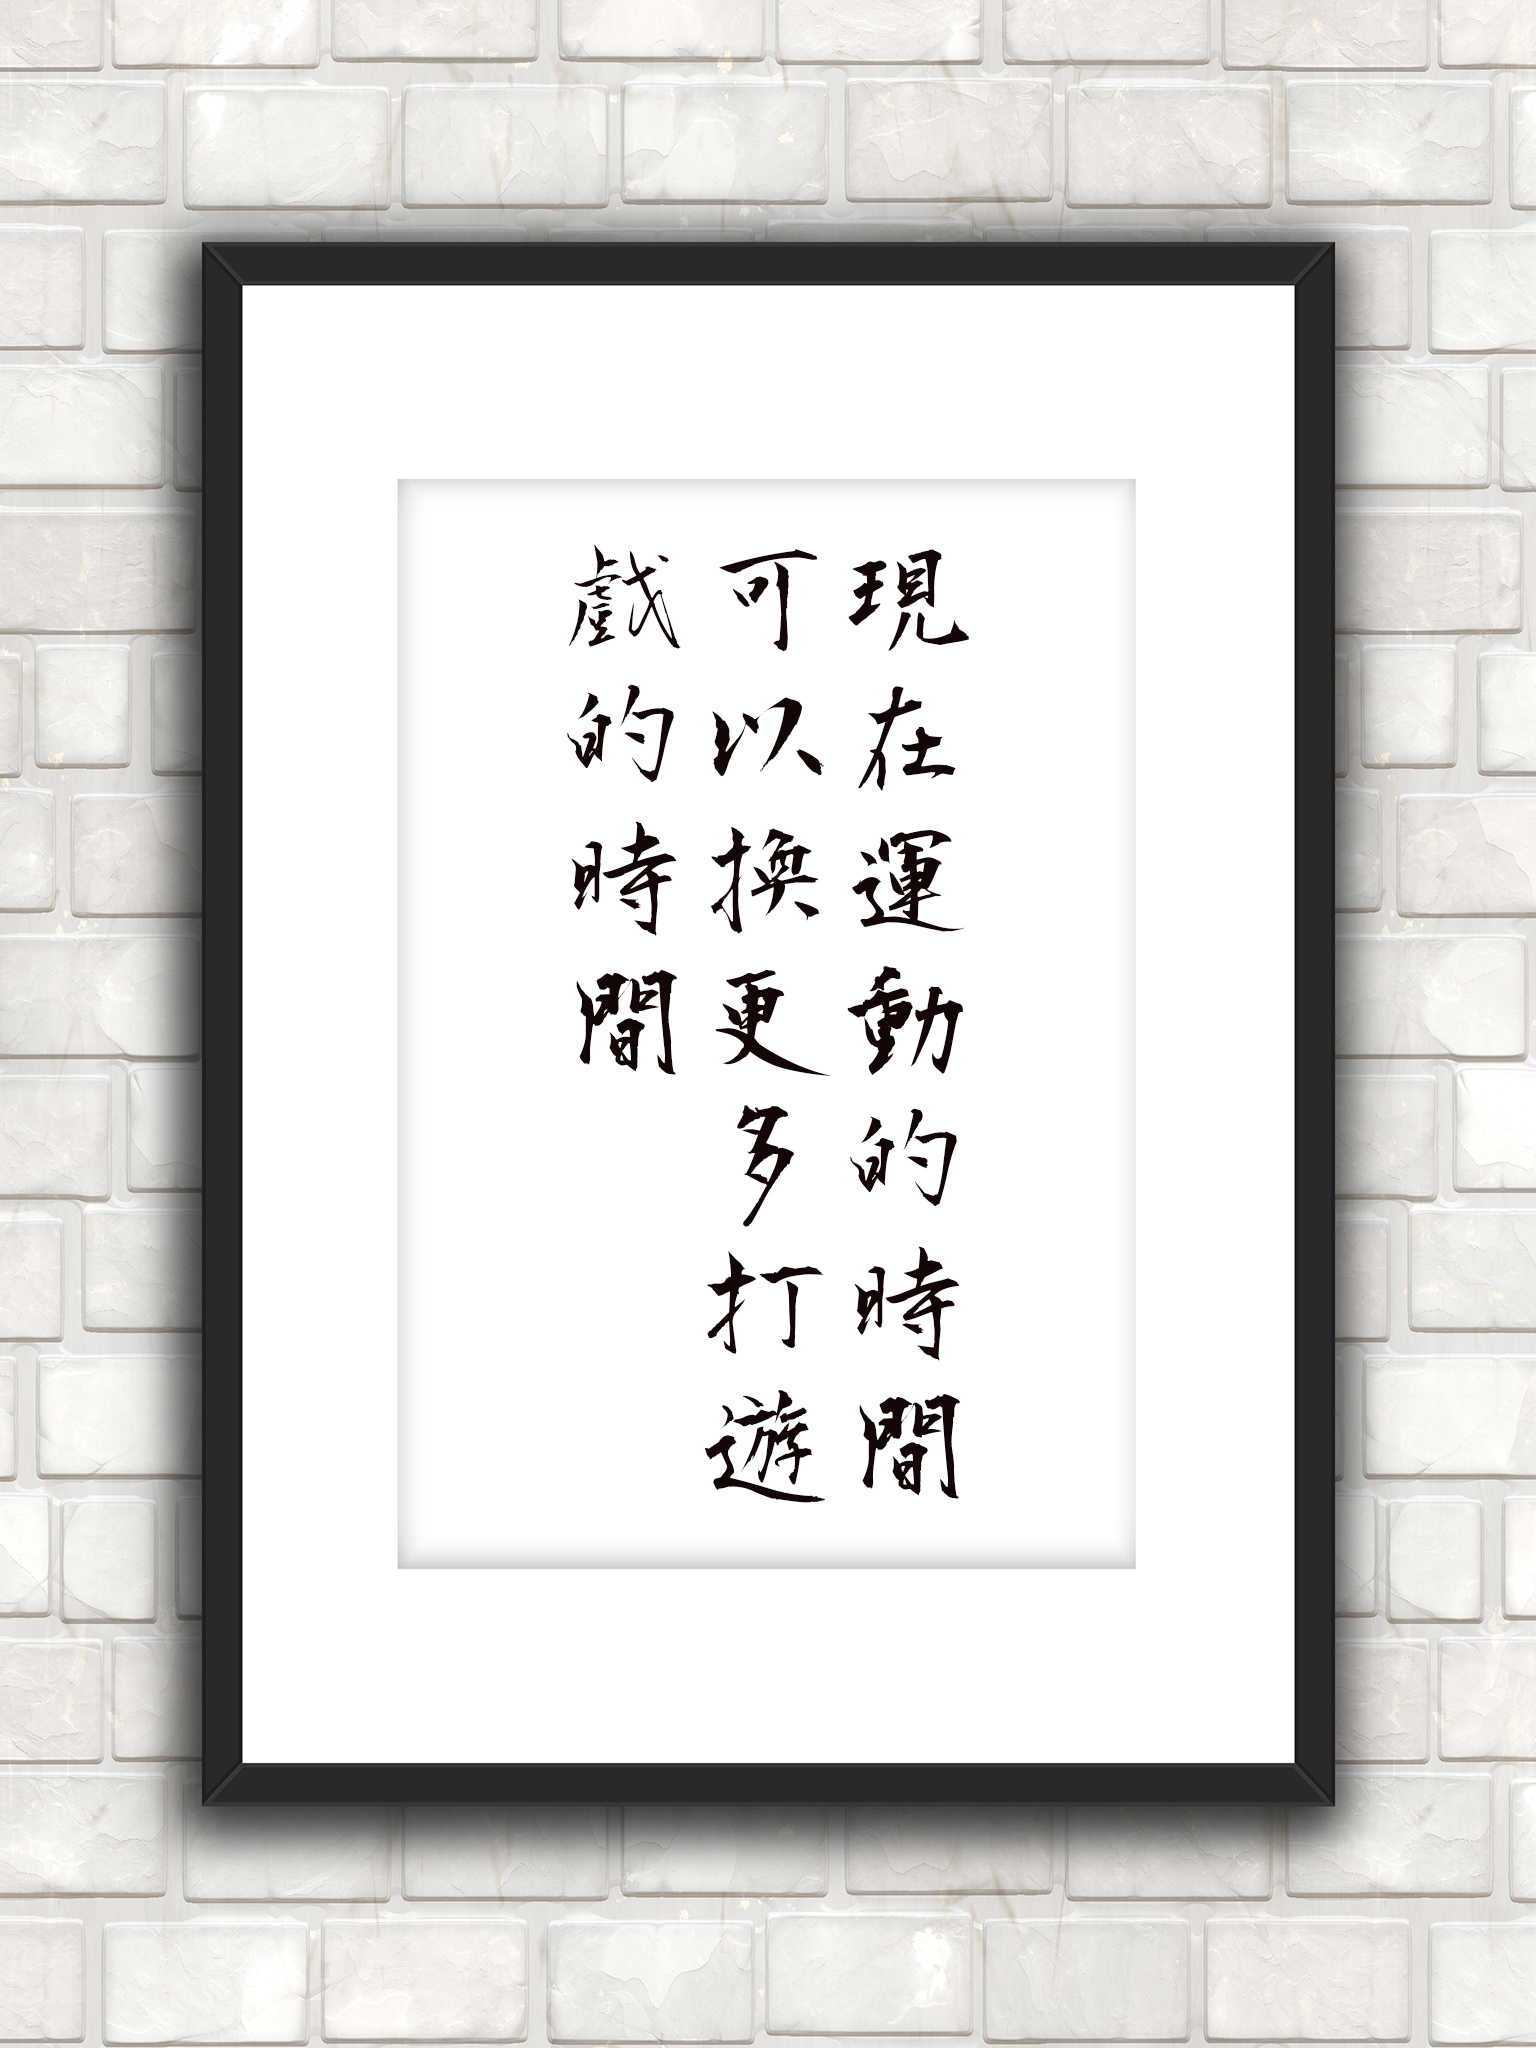 現在運動的時間
可以換更多打遊
戲的時間